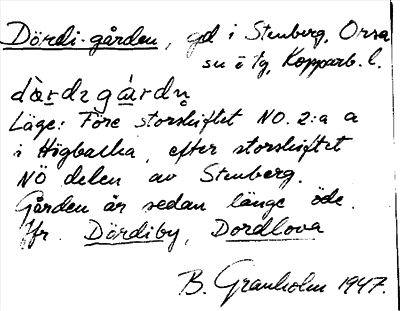 Dördi-gården, gd i Stenberg, Orsa
sn i tg, Kopparb. l.
dàrdɩgárdn̥
Läge: Före storskiftet NO. 2:a a
i Högbacka, efter storskiftet
NÖ delen av Stenberg.
Gården är sedan länge öde.
Jfr. Dördiby, Dordlova
B. Granholm 1947.